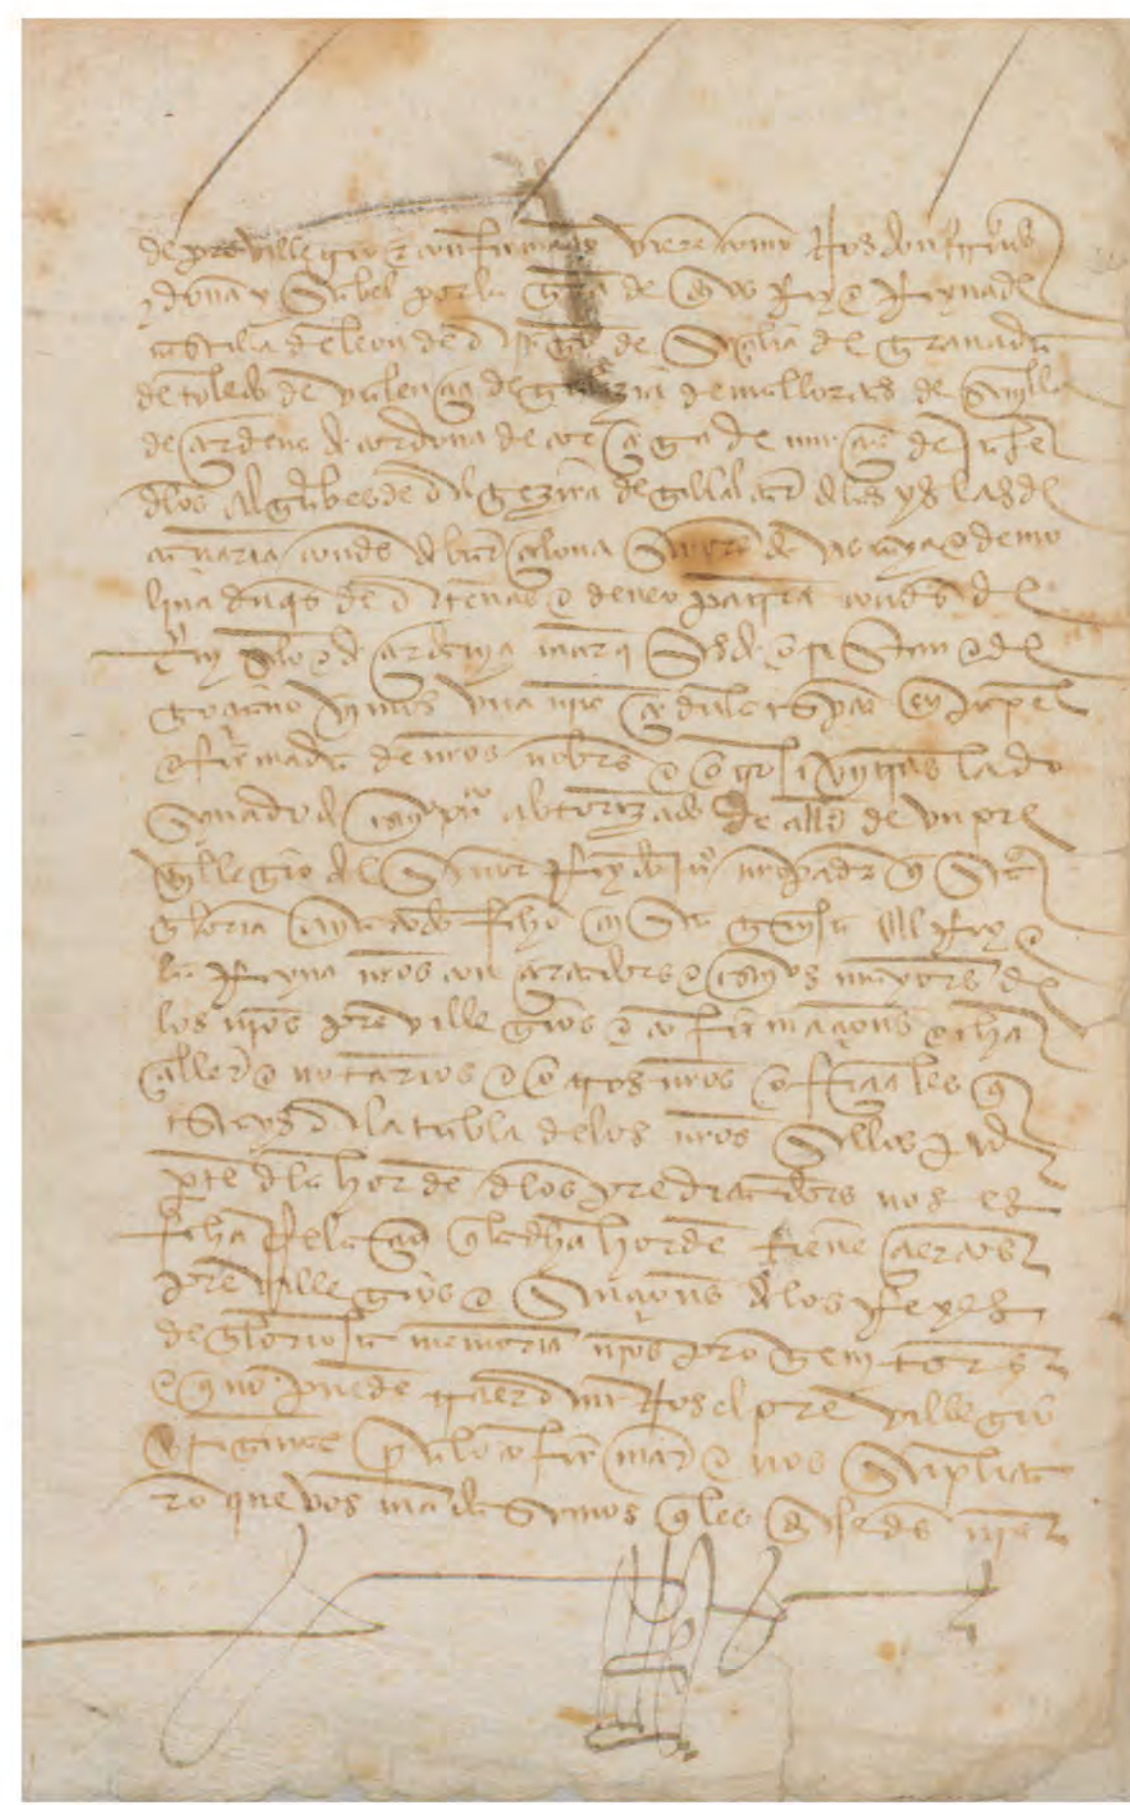 de previllegio e confirmaçion vieren como Nos don ferrnando
y doña ysabel por la graçia de dios Rey e Reyna de
castilla de leon de aragon de Seçilia de granada
de toledo de valençia de galizia de mallorcas de Sevilla
de çerdeña de cordova de corçega de murçia de Jahen
delos algarbes de algezira de gibraltar e delas yslas de
canaria conde de barçelona Señores de viscaya e de mo
lina duques de atenas e de neopatria condes de
Ruysellon e de çerdania marqueses de oristan e de
goçiano vimos una nuestra çedula escripta en papel
e firmada de nuestros nonbres e otrosi vimos un traslado
Synado de escrivano publico abtorizado de abtoridad de un pre
villegio del Señor Rey don Juan nuestro padre que Santa
gloria aya todo fecho en esta guisa El Rey e
la Reyna nuestros contadores e escrivanos mayores de
los nuestros previllegios e confirmaçiones e chan
çeller e notarios e otros nuestros ofiçiales que
estays a la tabla delos nuestros Sellos por
parte dela horden delos predicadores nos es
fecha Relaçion que la dicha horden tiene çiertos
previllegios e esençiones de los Reyes
de gloriosa memoria nuestros progenitores
e que no pueden traer ante Nos el previllegio
oreginal para lo confirmar e nos Suplica
ron que vos mandasemos que les diesedes nuestra